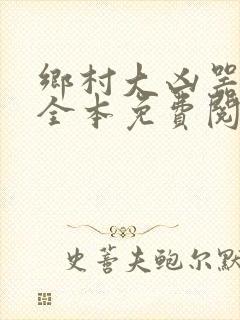 鄉村大凶器
全本免費閱
史蒈夫鲍尔默